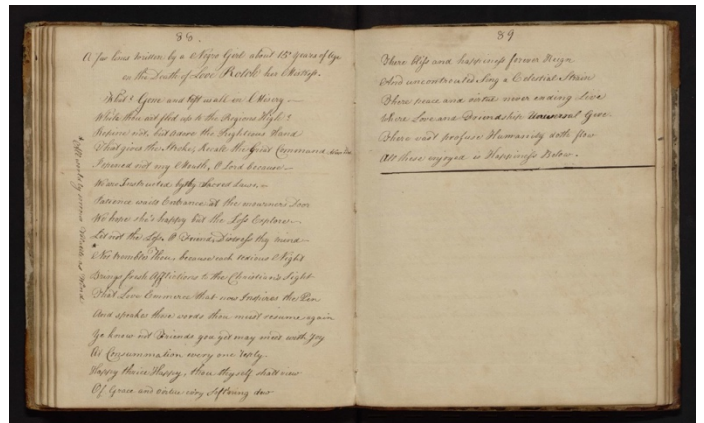 88.
A few lines written by a Negro Girl about 15 Years of age
on the Death of Love Rotch her Mistress.
What! Gone and left us all in Misery
While thou art fled up to the Regions High?
Repine not, but the Righteous Hand
That gives the Stroke, the Great Command
I opened not my Mouth, O Lord because
We're Instructed by thy Sacred Laws,
Patience waits Entrance at the mourners Door
We hope she's happy but the Loss Explore
Let not the Loss O Friend, Distress thy mind
* Nor troubles then, because each tedious Night
Brings fresh Afflictions to the Christian's Sight
That Love Commerce that now Inspires the Pen
And speaks these words thou must resume again
Ye know not Friends you yet may meet with Joy
At Consummation every one reply.
Happy thrice Happy, thou thyself shall view
Of Grace and virtue every Soft'ning dew
89
There bliss and happiness forever Reign
And uncontrouled Sing a Celestial Strain
There peace and virtue never ending live
Where Love and Friendship Universal Give
There vast profuse Humanity doth flow
All these enjoyed is Happiness Below.